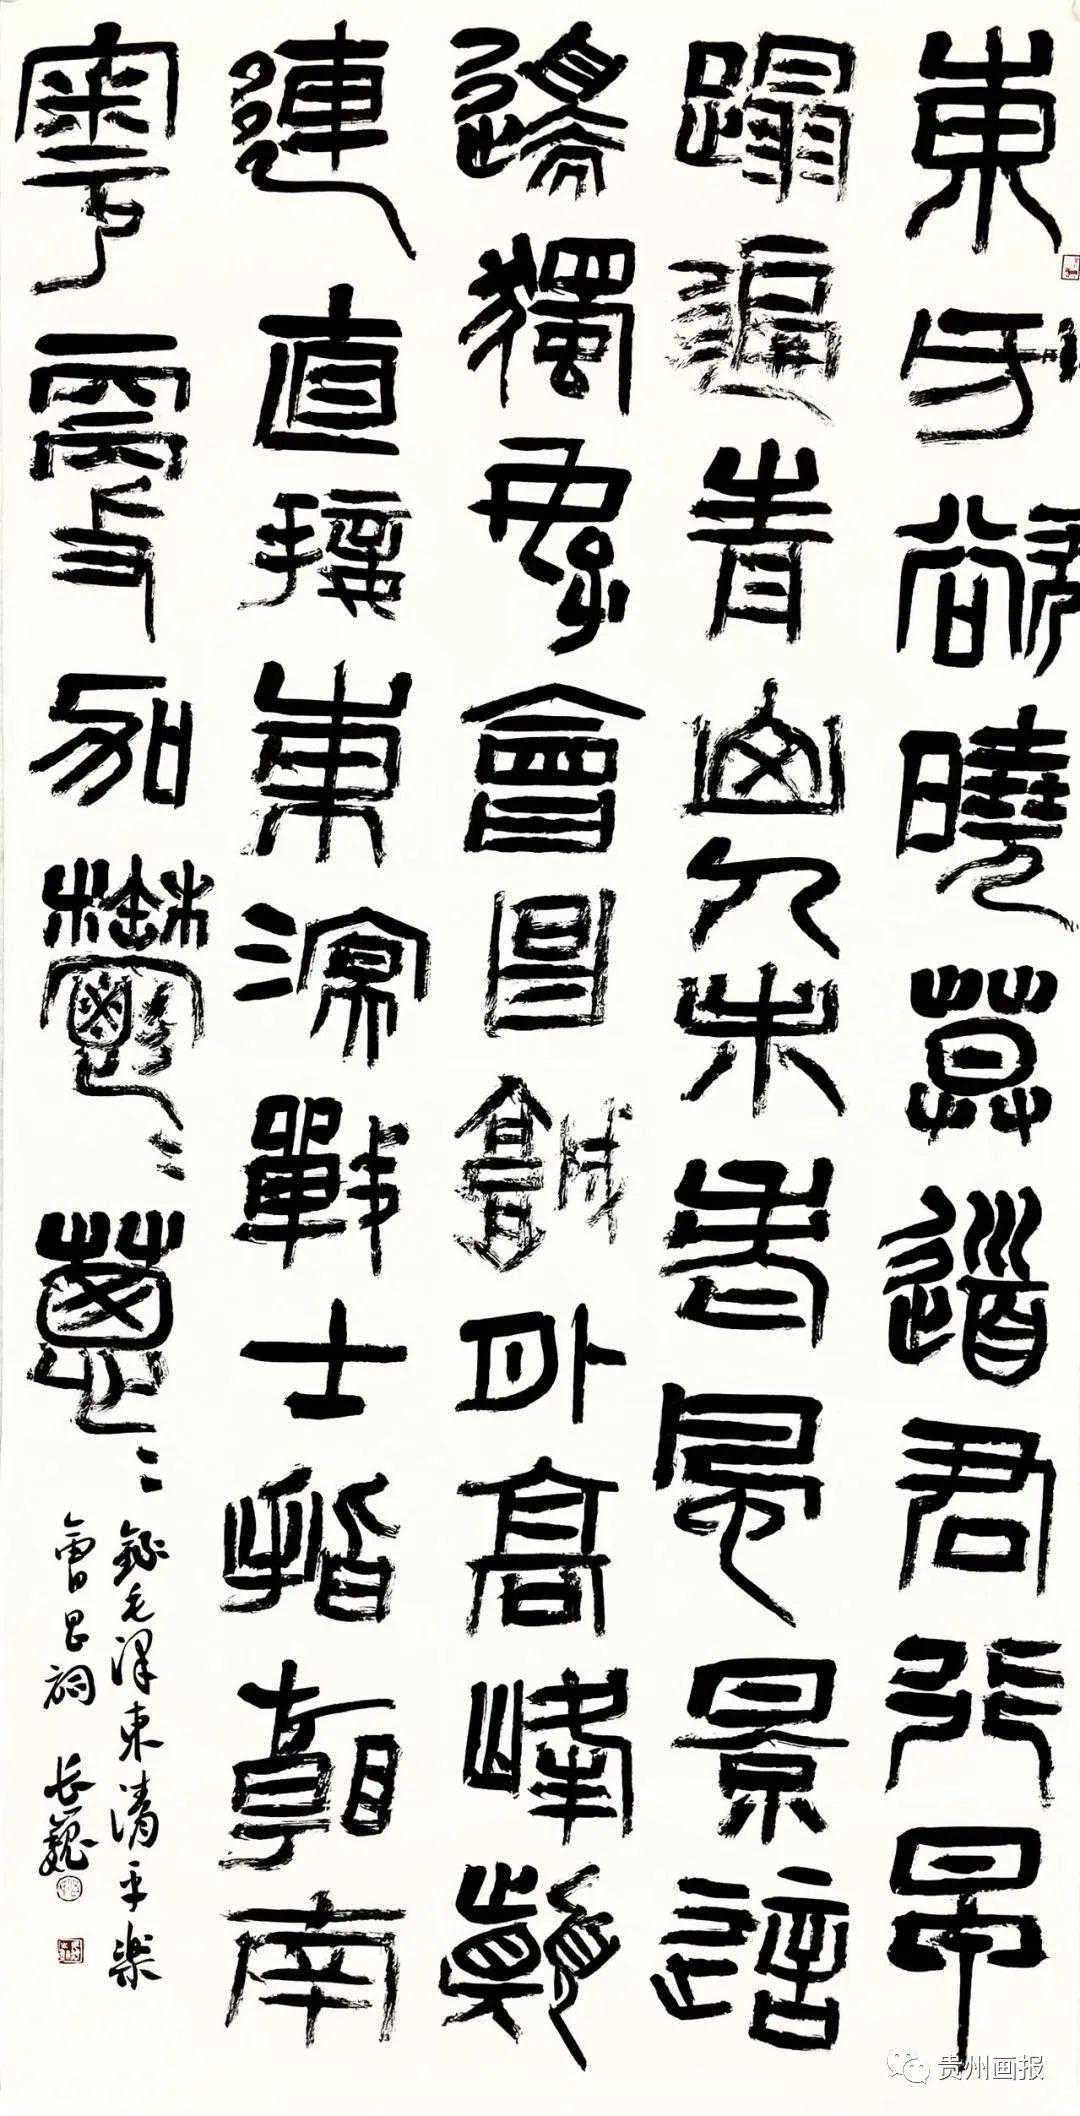 東方欲曉莫道君行早
蹋遍青山人未老風景這
邊獨好會昌城外高峰顛
連直接東溟戰士指看南
粵更加鬱〻蔥〻
錄毛澤東清平樂
會昌詞 長巍
贵州画报